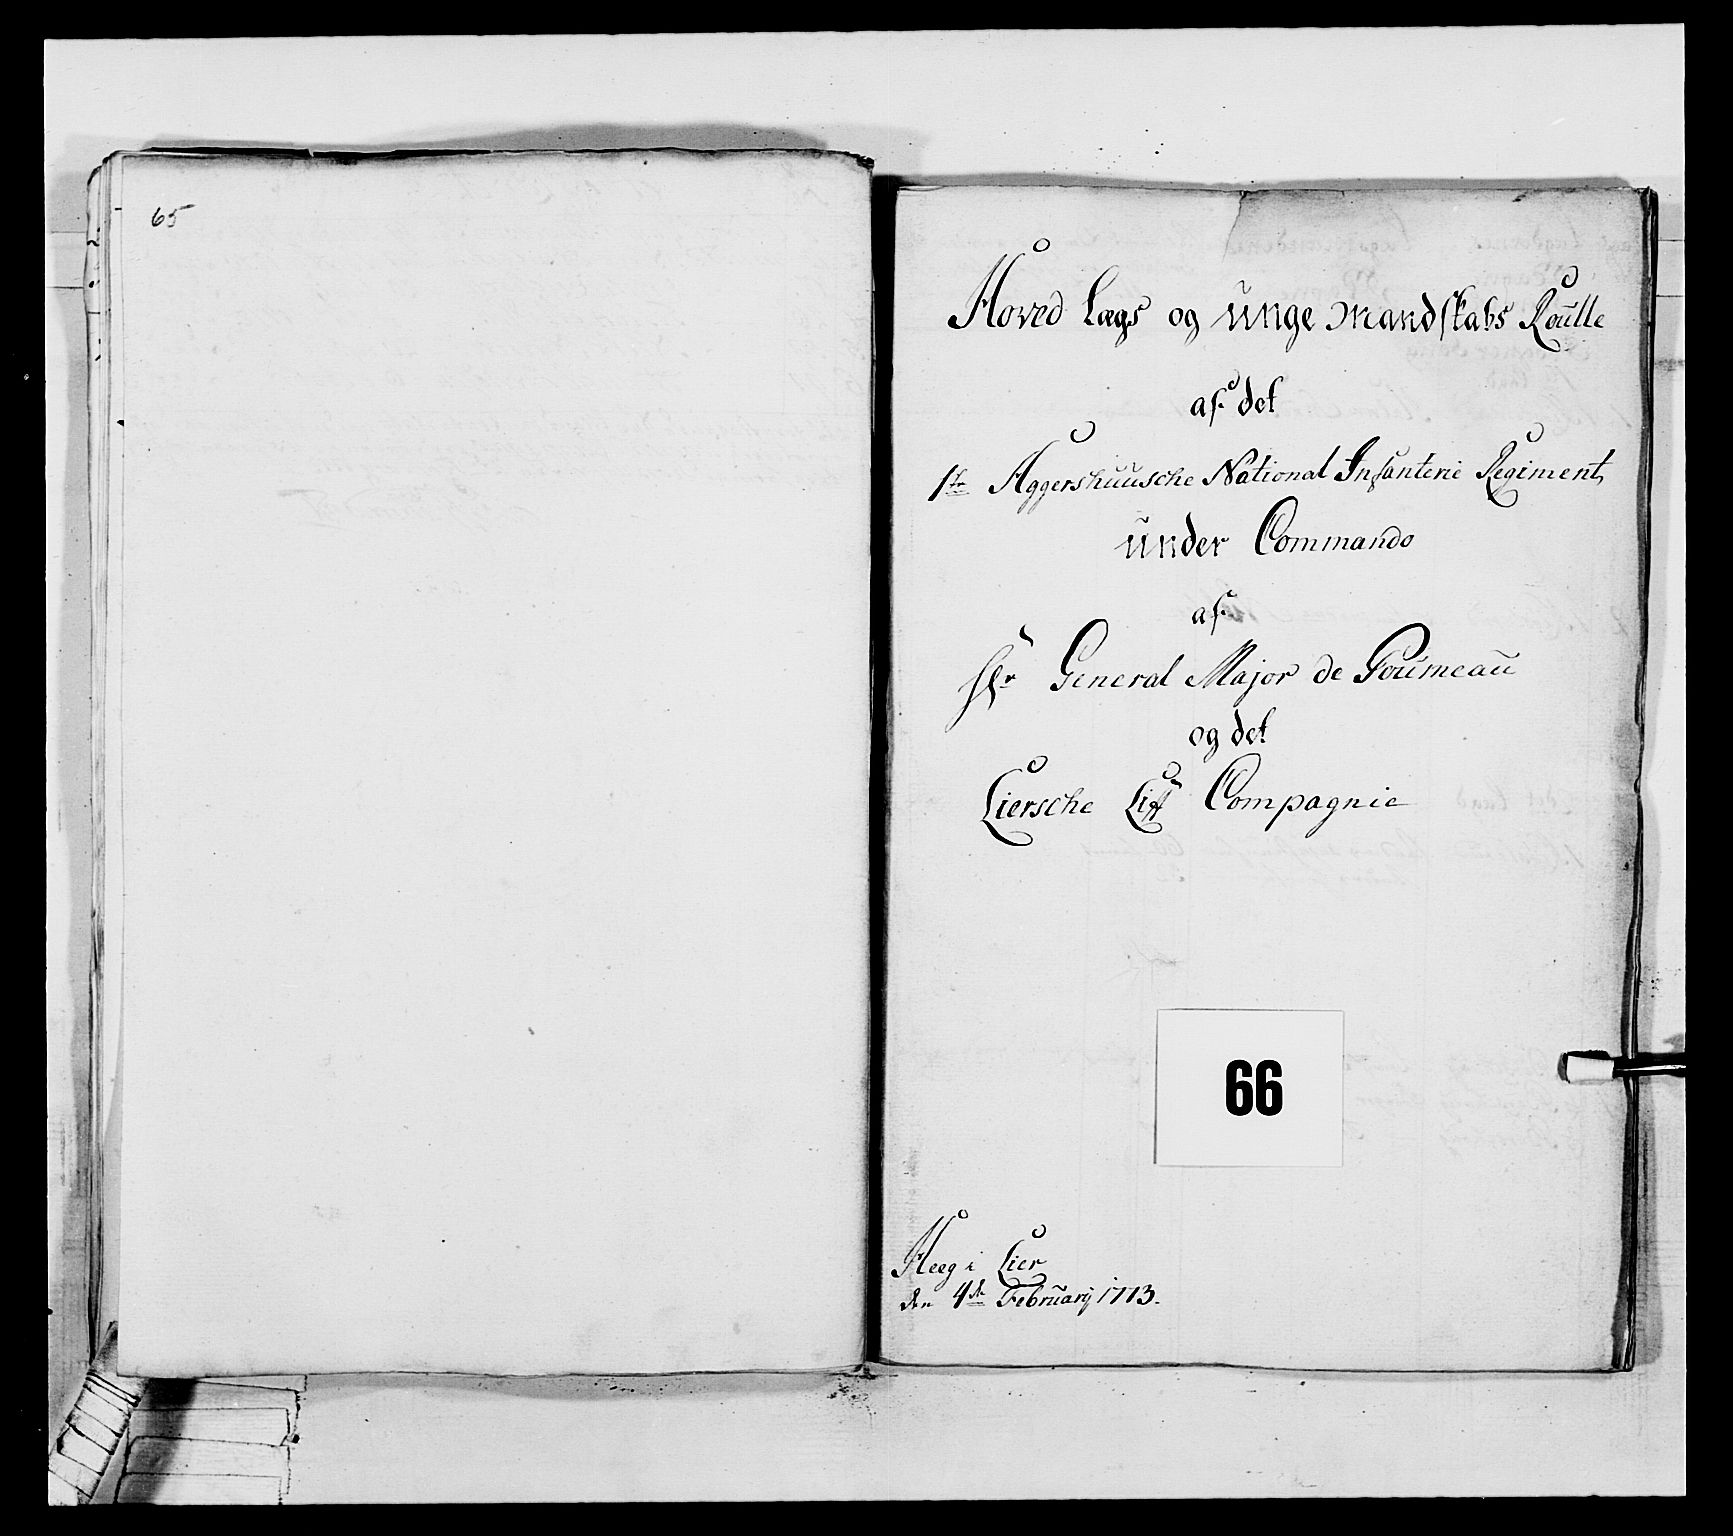 65
Hoved Lægs og unge Mandskabs Roulle
af det
1te Aggershuusche National Infanterie Regiment
under Commando
af
Hr General Major de Poumeau
og det
Liersche Liff Compagnie
66
Heeg i Lier
den 4de Februarij 1773.